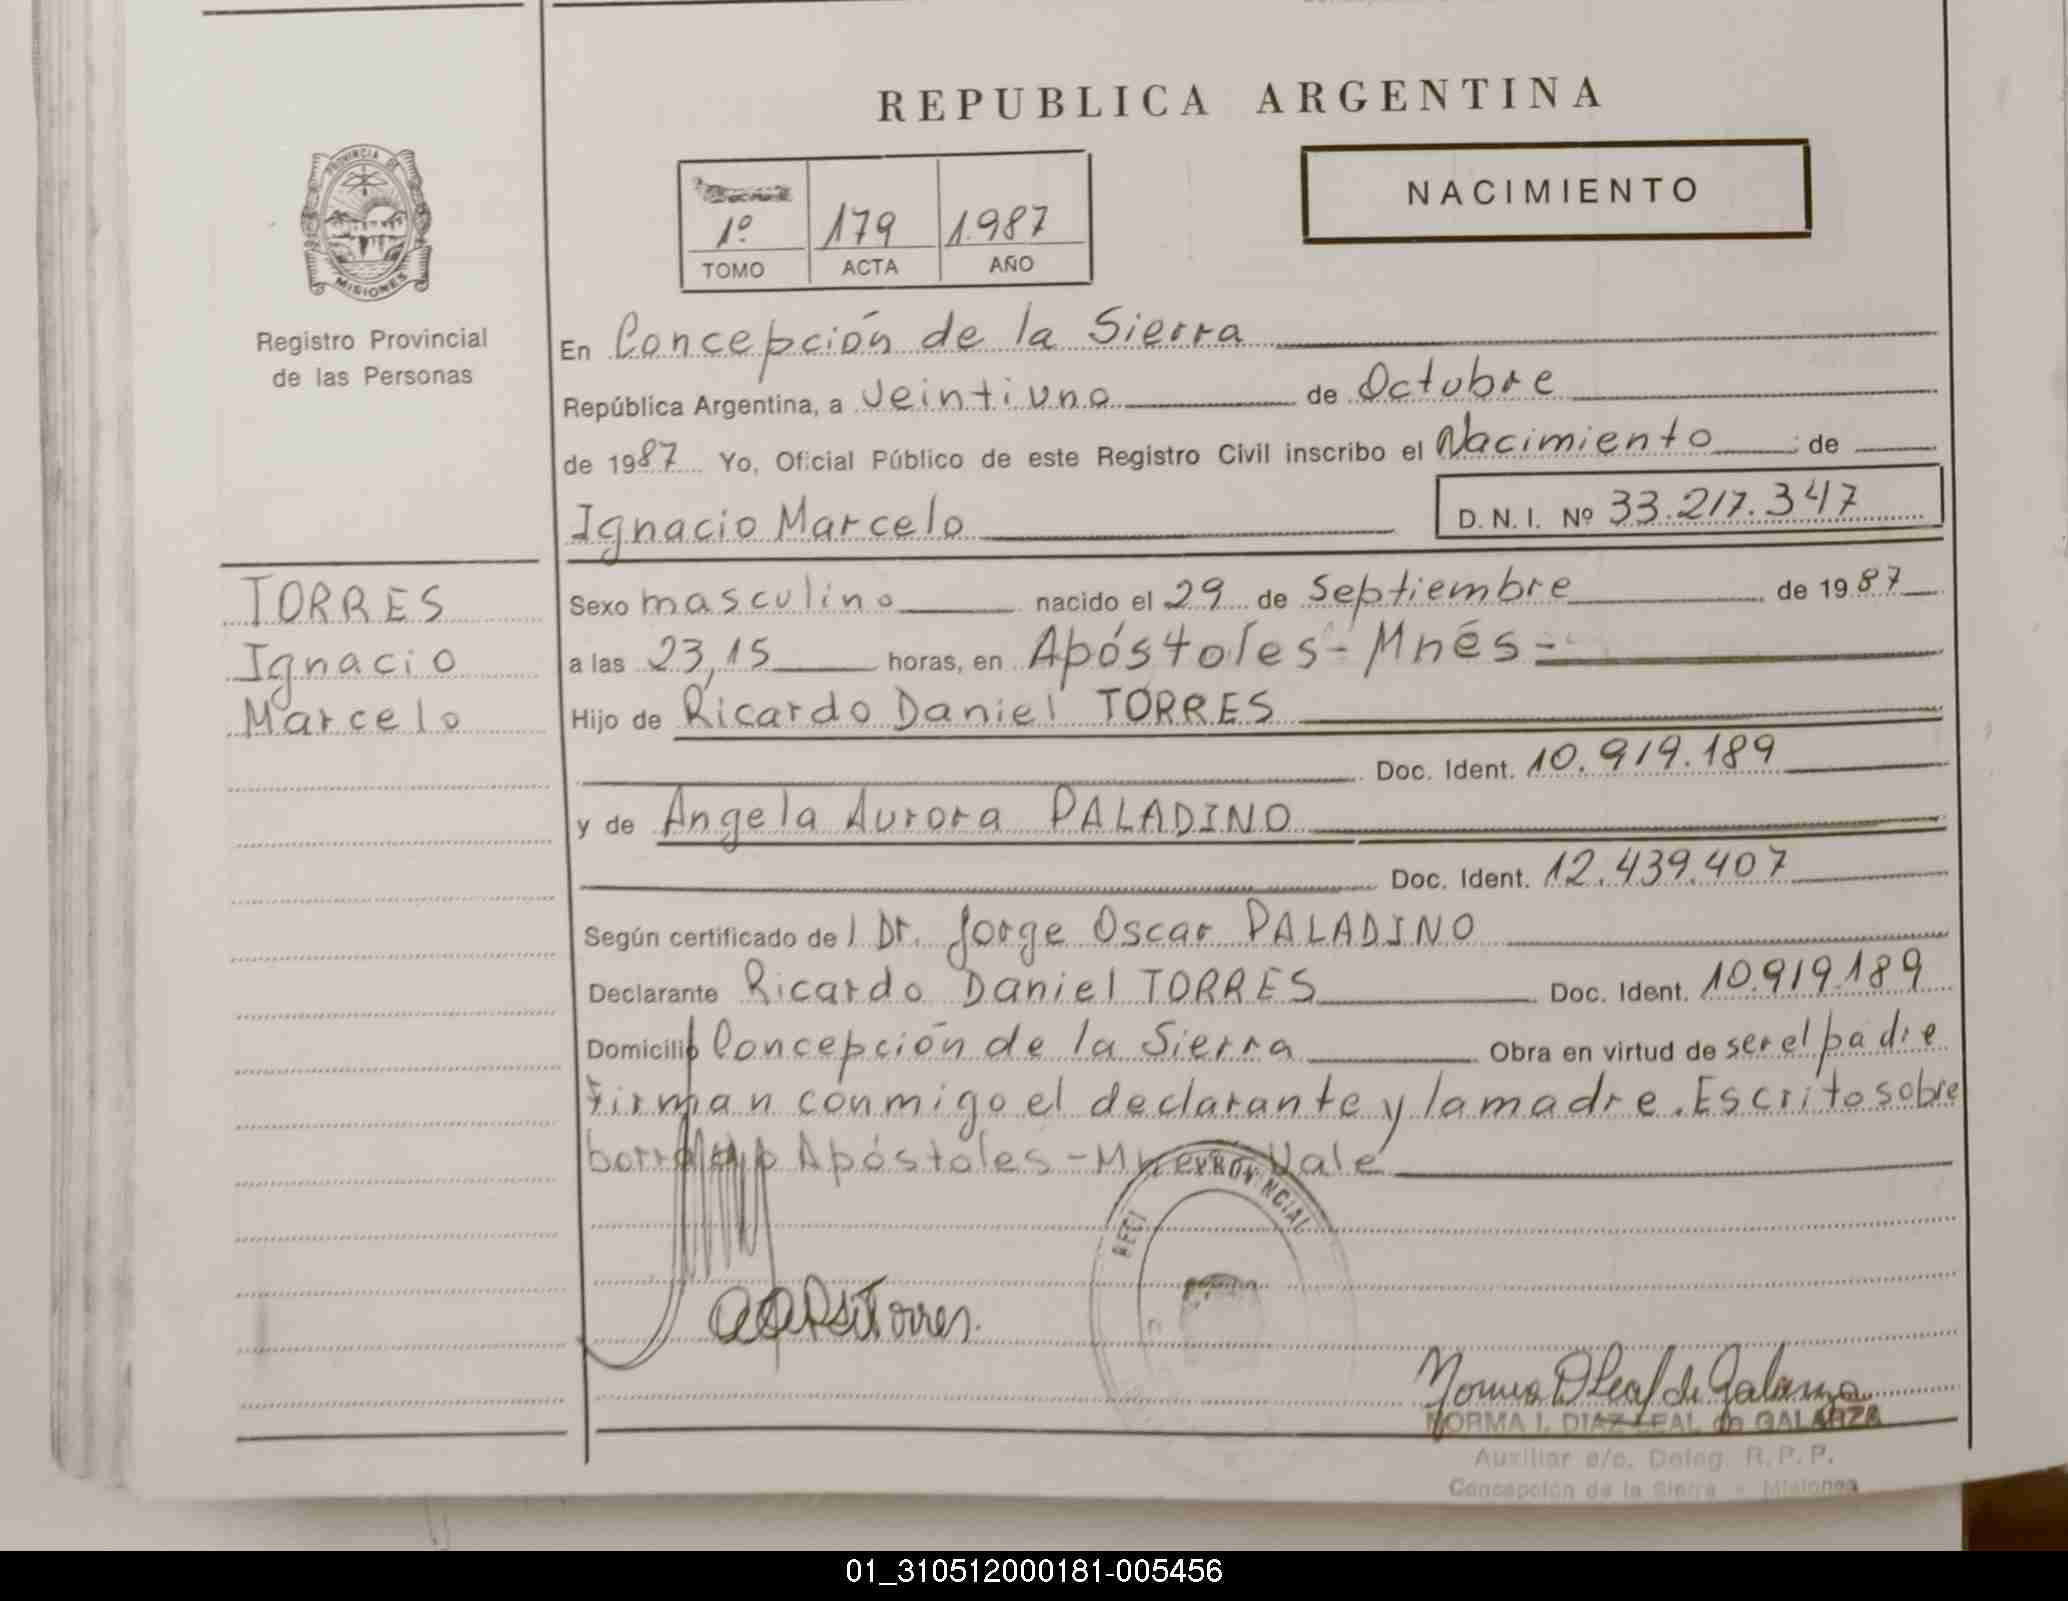 REPUBLICA ARGENTINA
NACIMIENTO
1º 179 1.987
TOMO ACTA AÑO
PROVINCIA DE
MISIONES
Registro Provincial
de las Personas
En Concepción de la Sierra
República Argentina, a veintiuno de Octubre
de 1987 Yo, Oficial Público de este Registro Civil inscribo el Nacimiento de
Ignacio Marcelo D.N.I. Nº 33.217.347
TORRES
Ignacio
Marcelo
Sexo masculino nacido el 29 de Septiembre de 1987
a las 23,15 horas, en Apóstoles - Mnes -
Hijo de Ricardo Daniel TORRES
Doc. Ident. 10.919.189
y de Angela Aurora PALADINO
Doc. Ident. 12.439.407
Según certificado del Dr. Jorge Oscar PALADINO
Declarante Ricardo Daniel TORRES Doc. Ident. 10.919.189
Domicilio Concepción de la Sierra Obra en virtud de ser el padre
Firman conmigo el declarante y la madre. Escrito sobre
borrado Apóstoles - Mnes Vale
PROVINCIAL
Torres.
Norma D Leal de Galarza
NORMA I. DIAZ LEAL de GALARZA
Auxiliar a/c. Deleg. R.P.P.
Concepción de la Sierra - Misiones
01_310512000181-005456